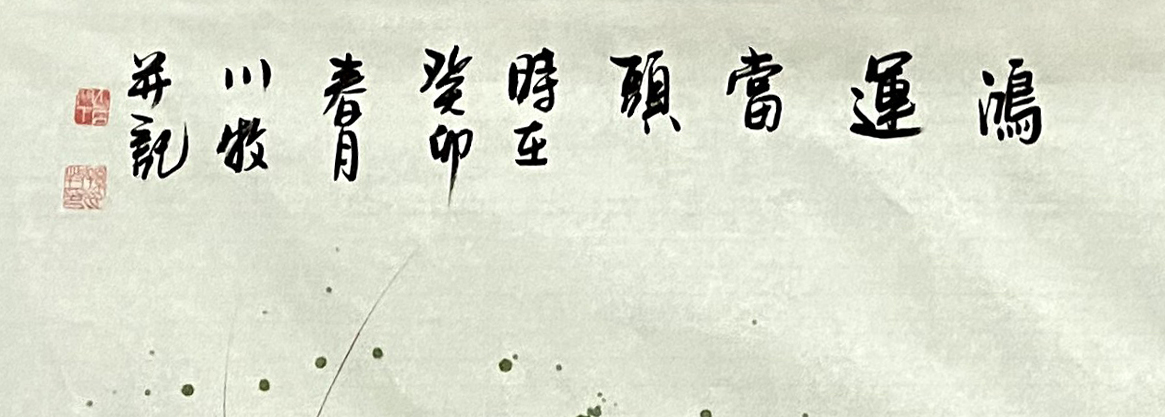 鴻運當頭
時在
癸卯
春月
川牧
并記